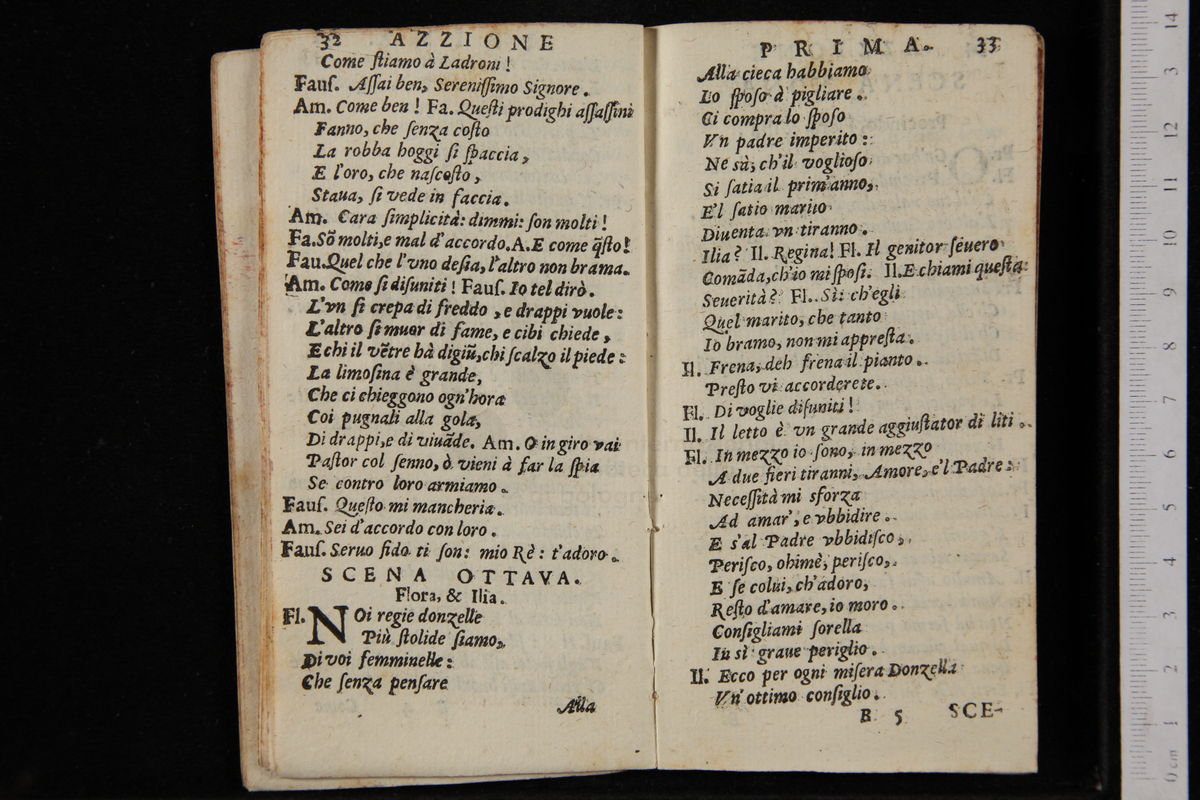 32 AZZIONE
Come ſtiamo à Ladroni!
Fauſ. Aſſai ben, Sereniſſimo Signore.
Am. Come ben! Fa. Queſti prodighi aſſaſſini
Fanno, che ſenza coſto
La robba hoggi ſi ſpaccia,
E l'oro, che naſcoſto,
Staua, ſi vede in faccia.
Am. Cara ſimplicità: dimmi: ſon molti!
Fa. Sõ molti, e mal d'accordo. A. E come q̃ſto!
Fau. Quel che l'vno deſia, l'altro non brama.
Am. Come ſi diſuniti! Fauſ. Io tel dirò.
L'vn ſi crepa di freddo, e drappi vuole:
L'altro ſi muor di fame, e cibi chiede,
E chi il vẽtre hà digiũ, chi ſcalzo il piede:
La limoſina è grande,
Che ci chieggono ogn'hora
Coi pugnali alla gola,
Di drappi, e di viuãde. Am. O in giro vai
Paſtor col ſenno, ò vieni à far la ſpia
Se contro loro armiamo.
Fauſ. Queſto mi mancheria.
Am. Sei d'accordo con loro.
Fauſ. Seruo fido ti ſon: mio Rè: t'adoro.
SCENA OTTAVA.
Flora, & Ilia.
Fl. NOi regie donzelle
Più ſtolide ſiamo,
Di voi femminelle:
Che ſenza penſare
Alla
PRIMA. 33
Alla cieca habbiamo
Lo ſpoſo à pigliare.
Ci compra lo ſpoſo
Vn padre imperito:
Ne sà, ch'il voglioſo
Si ſatia il prim'anno,
E'l ſatio marito
Diuenta vn tiranno.
Ilia? Il. Regina! Fl. Il genitor ſeuero
Comãda, ch'io mi ſpoſi. Il. E chiami queſta
Seuerità? Fl. Sì: ch'egli
Quel marito, che tanto
Io bramo, non mi appreſta.
Il. Frena, deh frena il pianto.
Preſto vi accorderete.
Fl. Di voglie diſuniti!
Il. Il letto è vn grande aggiuſtator di liti.
Fl. In mezzo io ſono, in mezzo
A due fieri tiranni, Amore, e'l Padre:
Neceſſità mi sforza
Ad amar', e vbbidire.
E s'al Padre vbbidiſco,
Periſco, ohimè, periſco,
E ſe colui, ch'adoro,
Reſto d'amare, io moro.
Conſigliami ſorella
In sì graue periglio.
Il. Ecco per ogni miſera Donzella
Vn' ottimo conſiglio.
B 5 SCE-